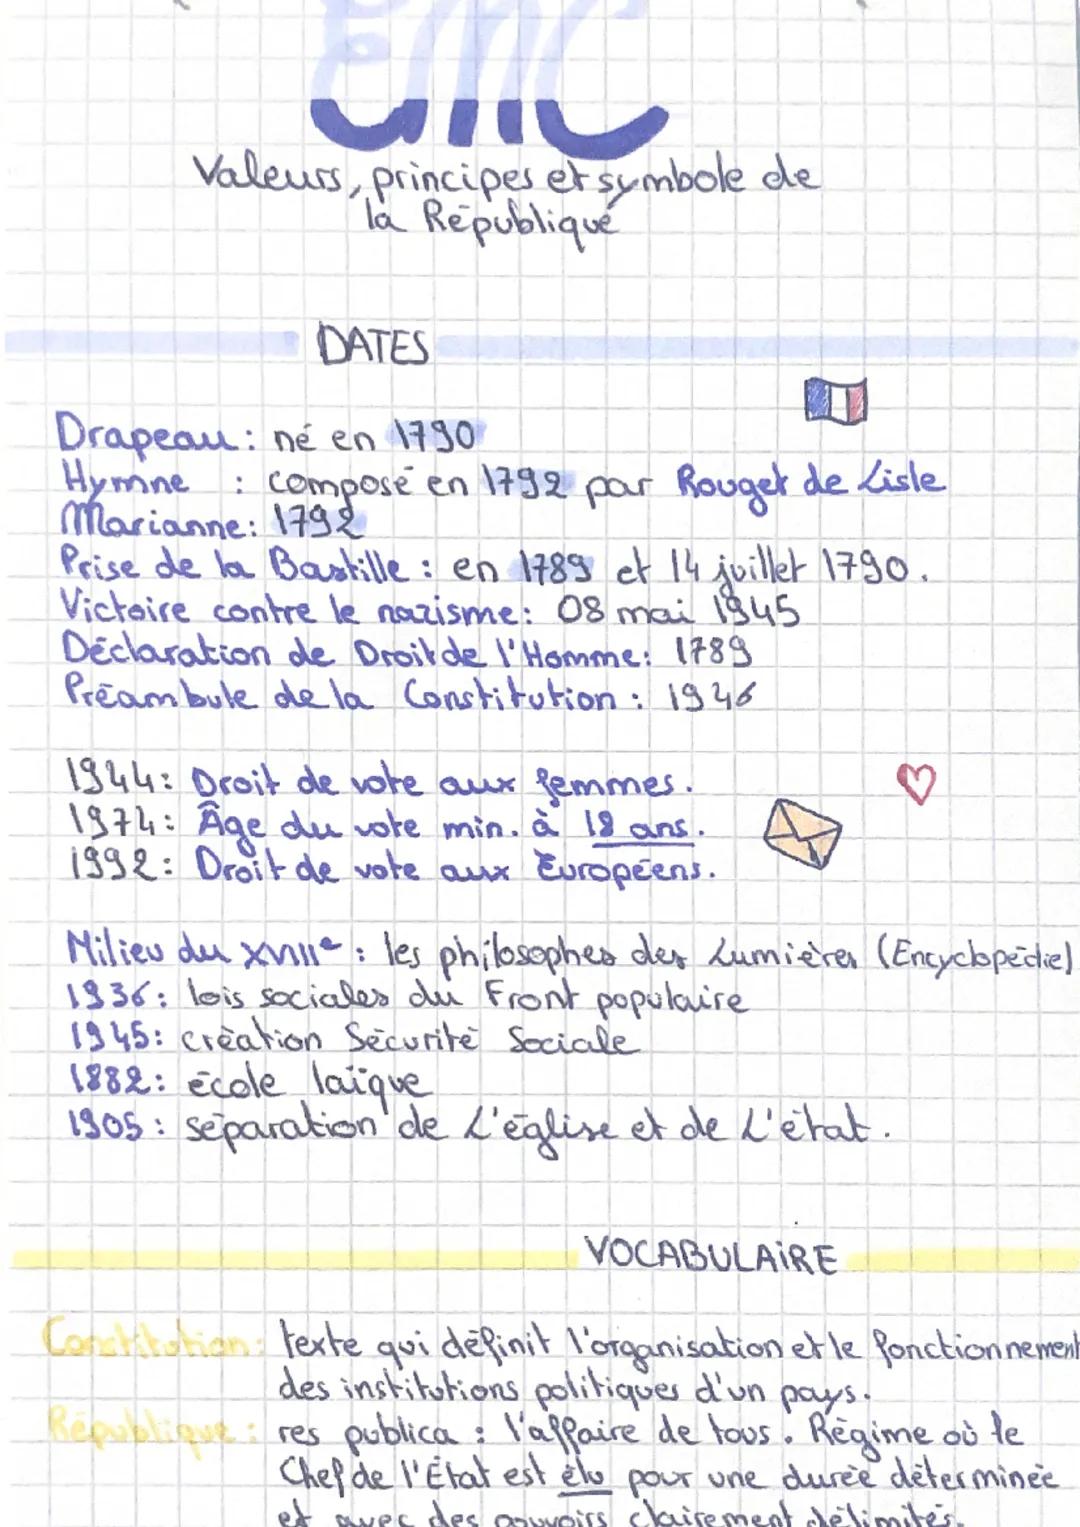 EMC
Valeurs, principes et symbole de
la République
DATES
Drapeau : né en 1790
Hymne : composé en 1792 par Rouget de Lisle
Marianne : 1792
Prise de la Bastille : en 1789 et 14 juillet 1790.
Victoire contre le nazisme : 08 mai 1945
Déclaration de Droit de l'Homme : 1789
Préambule de la Constitution : 1946
1944 : Droit de vote aux femmes.
1974 : Âge du vote min. à 18 ans.
1992 : Droit de vote aux Européens.
Milieu du XVIIIe : les philosophes des Lumières (Encyclopédie)
1936 : lois sociales du Front populaire
1945 : création Sécurité Sociale
1882 : école laïque
1905 : séparation de L'église et de L'état.
VOCABULAIRE
Constitution : texte qui définit l'organisation et le fonctionnement
des institutions politiques d'un pays.
République : res publica : l'affaire de tous. Régime où le
Chef de l'État est élu pour une durée déterminée
et avec des pouvoirs clairement délimités.